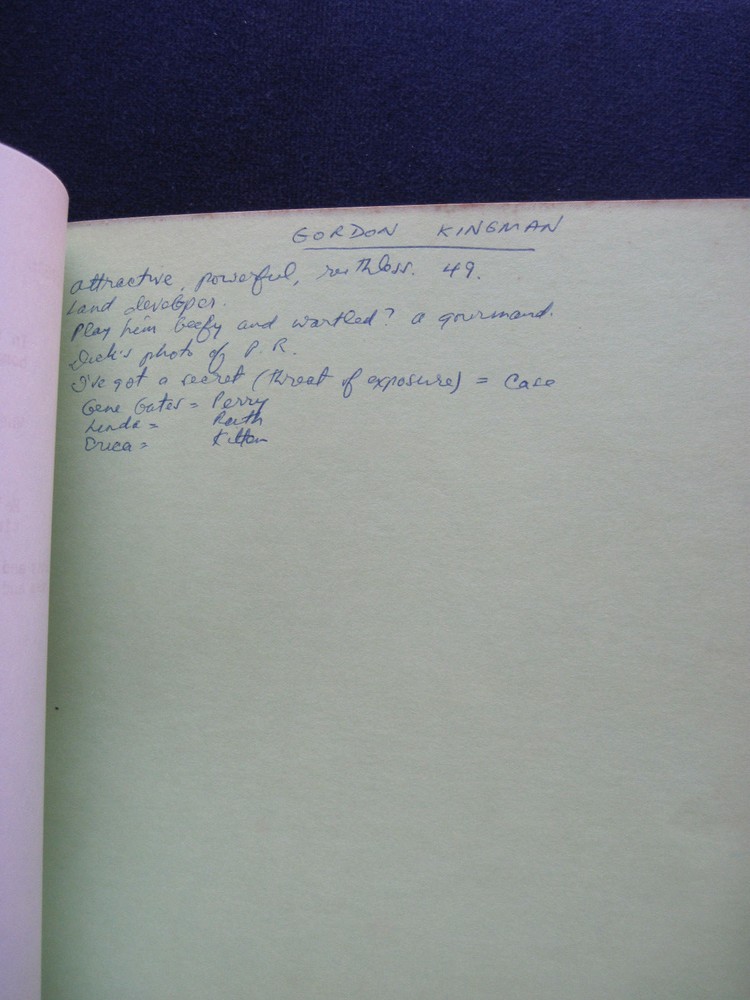 GORDON KINGMAN
attractive, powerful, ruthless. 49.
Land developer.
Play him beefy and wartled? a gourmand.
Dick's photo of P.R.
I've got a secret (threat of exposure) = Case
Gene Gates = Perry
Linda = Ruth
Erica =